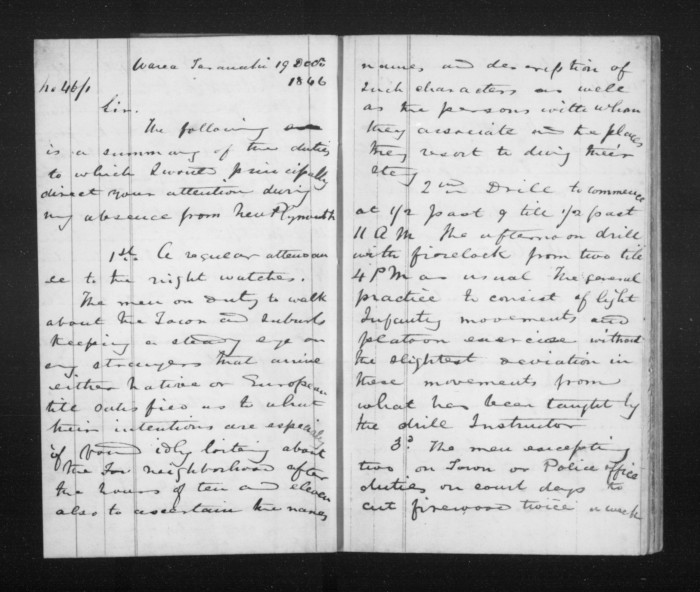 Warea Taranaki 19 Decr
1846
no 46/1
Sir.
The following
is a summary of the duties
to which I want principally
direct your attention during
my absence from New Plymouth
1st. A regular attendan
ce to the night watches.
The men on duty to walk
about the Town and suburbs
keeping a steady eye on
any strangers that arrive
either Native or European
till satisfied as to what
their intentions are especially
if found idly loiting about
the neighborhood after
the hours of ten and eleven
also to ascertain the names
names and description of
such characters as well
as the persons with whom
they associate and the places
they resort to during their
stay
2nd Drill to commence
at 1/2 past 9 till 1/2 past
11 AM The afternoon drill
with firelock from two till
4 PM as usual The general
practice to consist of light
Infantry movements and
platoon exercise without
the slightest deviation in
these movements from
what has been taught by
the drill Instructor
3d The men excepting
two on Town or Police office
duties on court days to
cut firewood twice a week